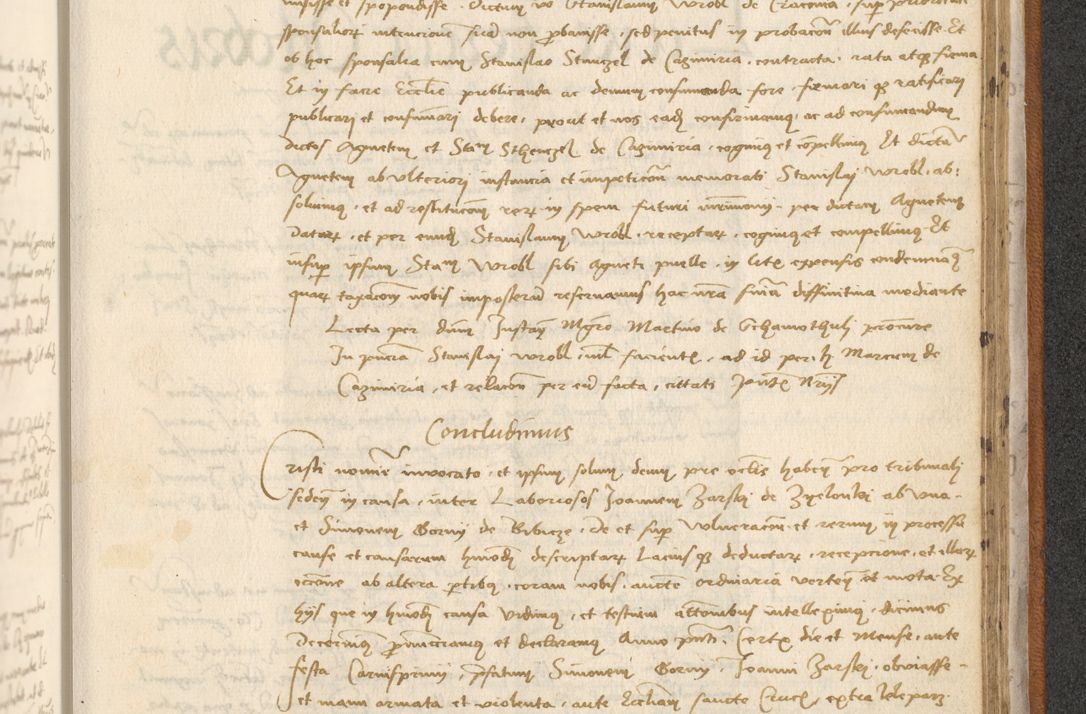 misisse et spopondisse. Dictum vo Stanislaum Wrobl de Cracovia, sup prioritate
sponsalior intencionem sua non probavisse, sed penitus in probacõe illius defecisse. Et
ob hoc sponsalia cum Stanislao Stenczel de Cazimiria contracta, rata atq firma
Et in facie Ecclie publicanda ac demum consumanda fore, firmari q ratificari
publicari et confirmari debere, prout et nos eadẽ confirmamus, ac ad consumandum
dictos Agnetem et Stan Sthenczel de Cazimiria, cogimus et compellimus Et dictã
Agnetem ab ulteriori instancia et impeticõe memorati Stanislaj Wrobl, ab:
solvimus, et ad restitucõem rerum in spem futuri mrimonij per dictam Agnetem
datar, et per eundẽ Stanislaum Wrobl, receptar, cogimus et compellimus Et
insup ipsum Stan Wrobl sibi Agneti puelle, in litis expensis condemnamus
quar taxacõem nobis imposterũ reservamus hac nra snia diffinitiva mediante
Lecta per dnum Justum Mgro Martino de Schamothulj procurre
In pncia Stanislaj Wrobl, nil facientis, ad id per h Marcum de
Cazimiria, et relacõem per eũ facta, cittati pntis Nrijs
Concludimus
Cristi nomine invocato, et ipsum solum deum, pre oclis habentes pro tribunali
sedentes in causa, inter Laboriosos Joannem Zarski de Zyelonki ab una
et Simonem Gorny de Bibicze, de et sup vulneracõe et rerum in processu
cause et causarum hmodi descriptar Lacius q deductar, recepcione, et illar
occõne ab altera ptibus, coram nobis, aucte ordinaria verten et mota. Ex
hijs que in hmodi causa vidimus, et testium attonibus intelleximus, dicimus
Decernimus pnunciamus et declaramus Anno pnti, Certis die et Mense, ante
festa Carnisprivij, pfatum Simonem Gorny, Joanni Zarski, obviasse
et manu armata et violenta, ante Eccliam sancte Crucis, extra